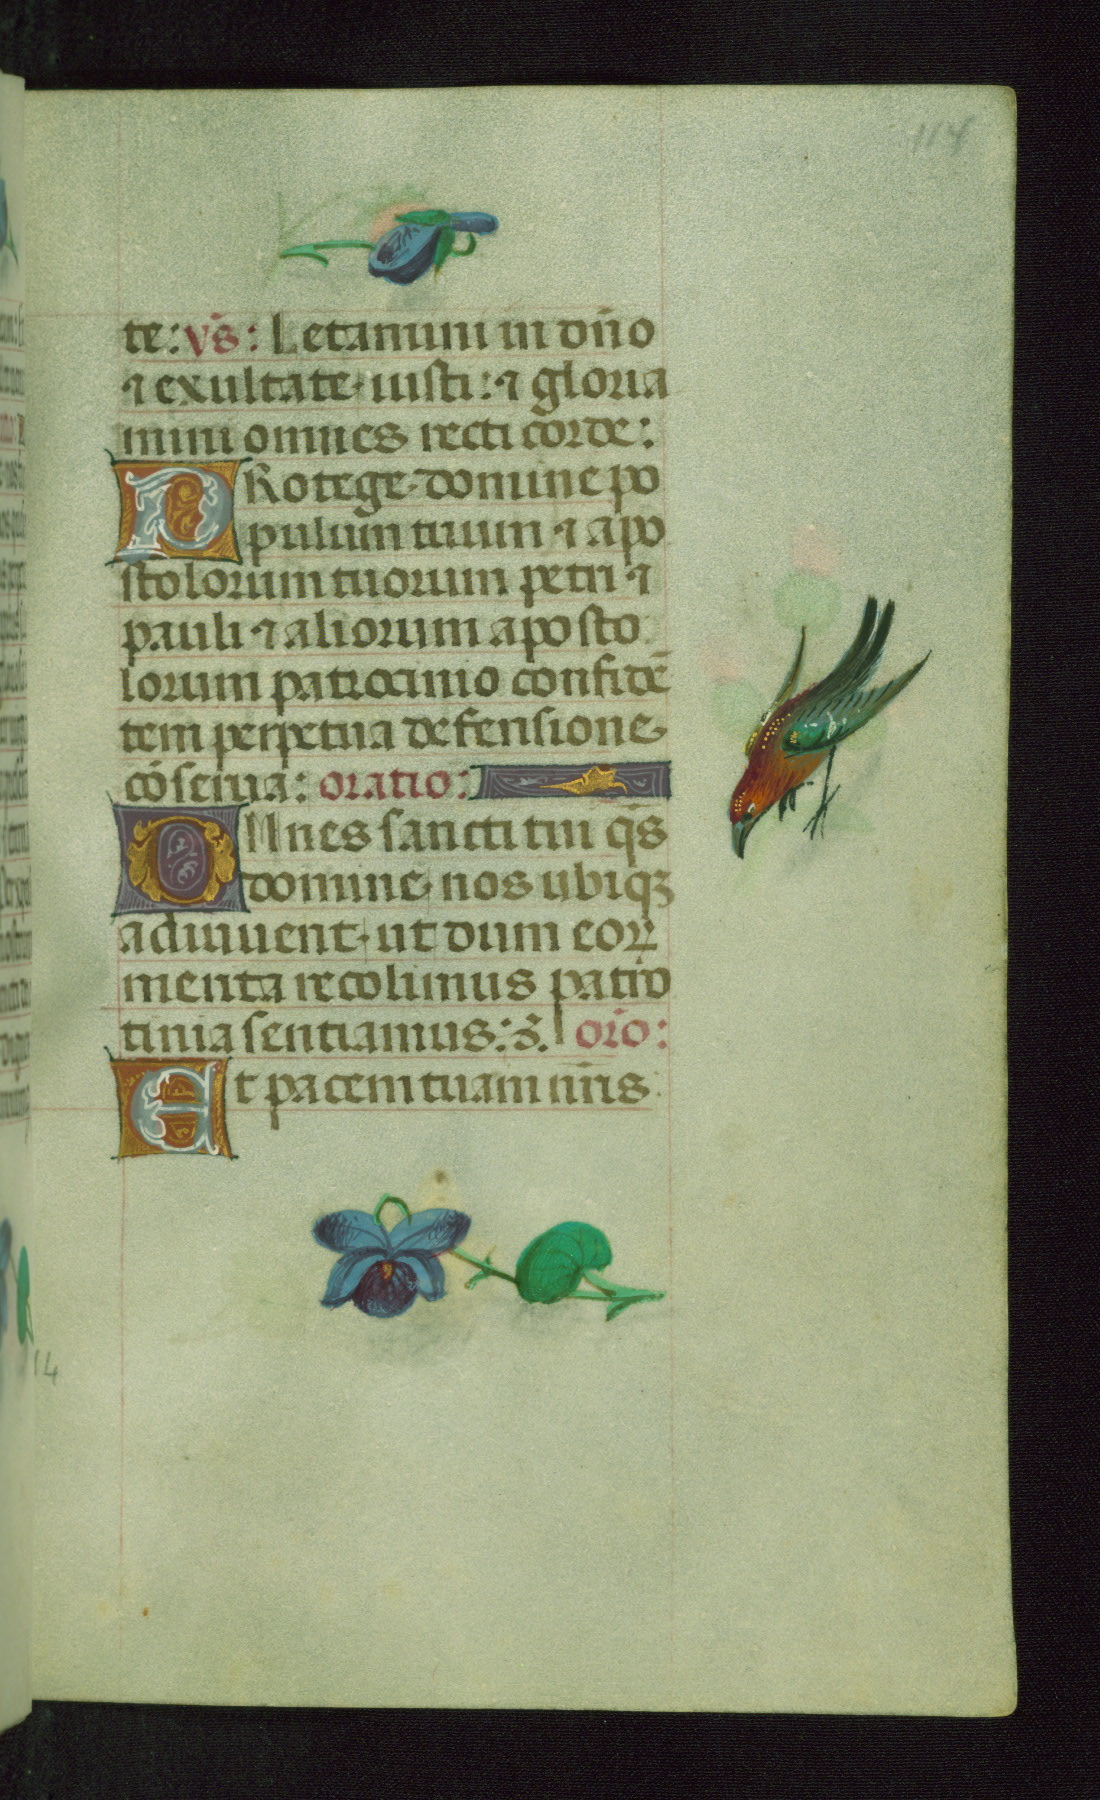 114
te: vs̄: Letamini in dn̄o
⁊ exultate iusti: ⁊ gloria
mini omnes recti corde:
PRotege domine po
pulum tuum ⁊ apo
stolorum tuorum petri ⁊
pauli ⁊ aliorum aposto
lorum patrocinio confidē
tem perpetua defensione
cōserua: oratio:
OMnes sancti tui qs̄
domine nos ubiqꝫ
adiuuent ut dum eoꝝ
merita recolimus patro
cinia sentiamus: oro̅:
Et pacem tuam nr̄is